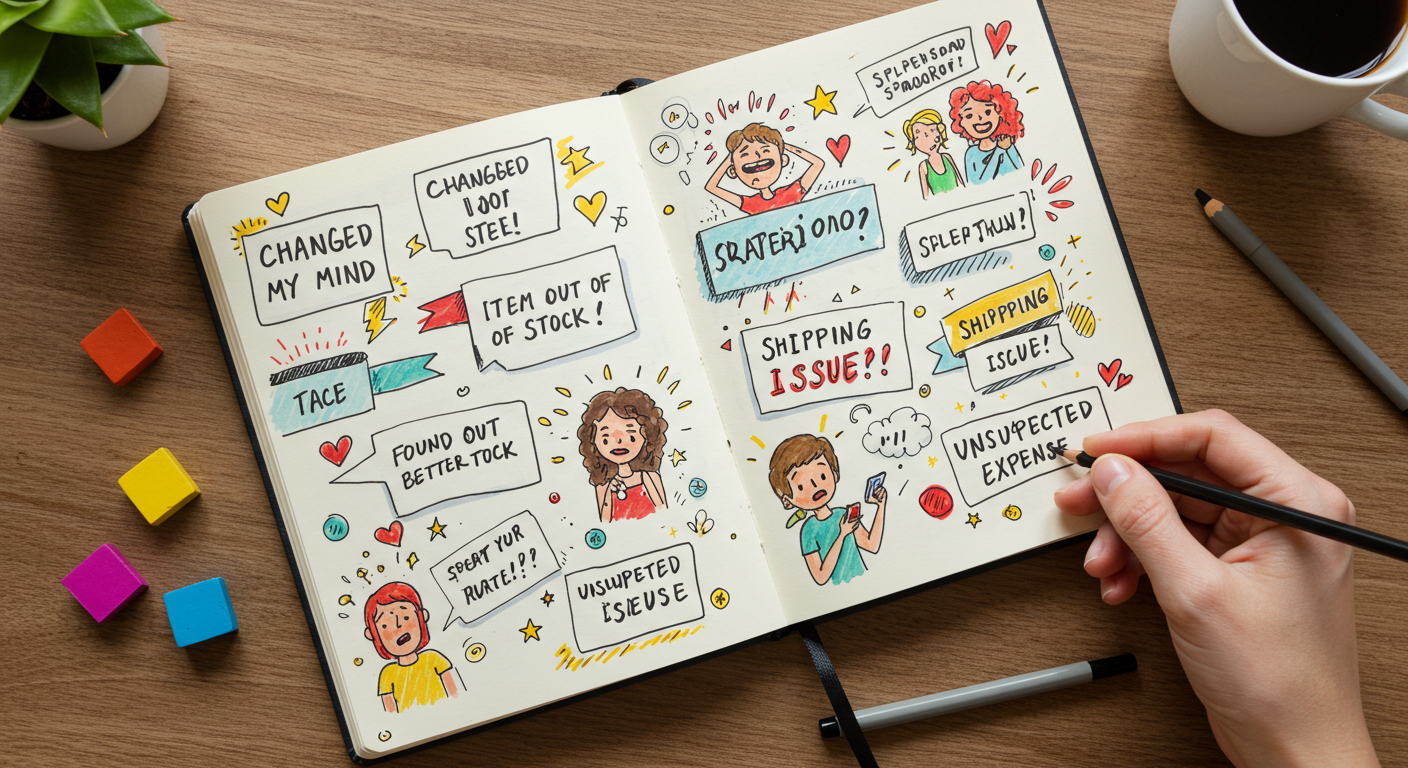 CHANGED
MY MIND
CHANGBED
STEE!
ITEM OUT OF
OF STOCK!
TACE
FOUND OUT
BETTER TOCK
SPEAT YUR
RUATE!??
UNSUPETED
ISIEUSE
SPLPEHSOAD
SPMOOROT!
SRATERJONO?
SPLEP THUN?
SHIPPING
ISSUE??
SHIPPPING
ISCUE!
UNSUPECTED
EXPENSE